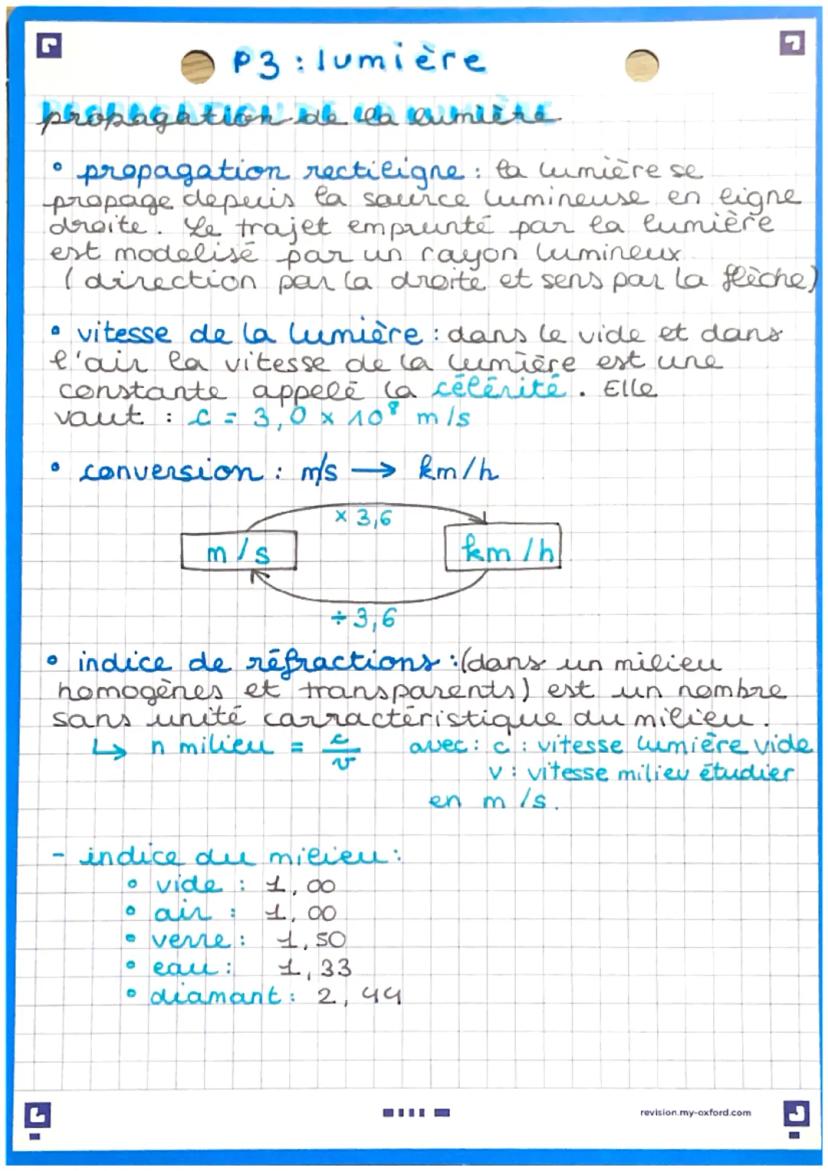 P3 : lumière
propagation de la lumière
• propagation rectiligne : la lumière se
propage depuis la source lumineuse en ligne
droite. Le trajet emprunté par la lumière
est modelisé par un rayon lumineux
(direction par la droite et sens par la flèche)
• vitesse de la lumière : dans le vide et dans
l'air la vitesse de la lumière est une
constante appelé la célérité. Elle
vaut : c = 3,0 × 10⁸ m/s
• conversion : m/s → km/h
× 3,6
m/s km/h
÷ 3,6
• indice de réfractions : (dans un milieu
homogènes et transparents) est un nombre
sans unité carractéristique du milieu.
↳ n milieu = c/v avec : c : vitesse lumière vide
v : vitesse milieu étudier
en m/s.
- indice du milieu :
• vide : 1,00
• air : 1,00
• verre : 1,50
• eau : 1,33
• diamant : 2,44
revision.my-oxford.com